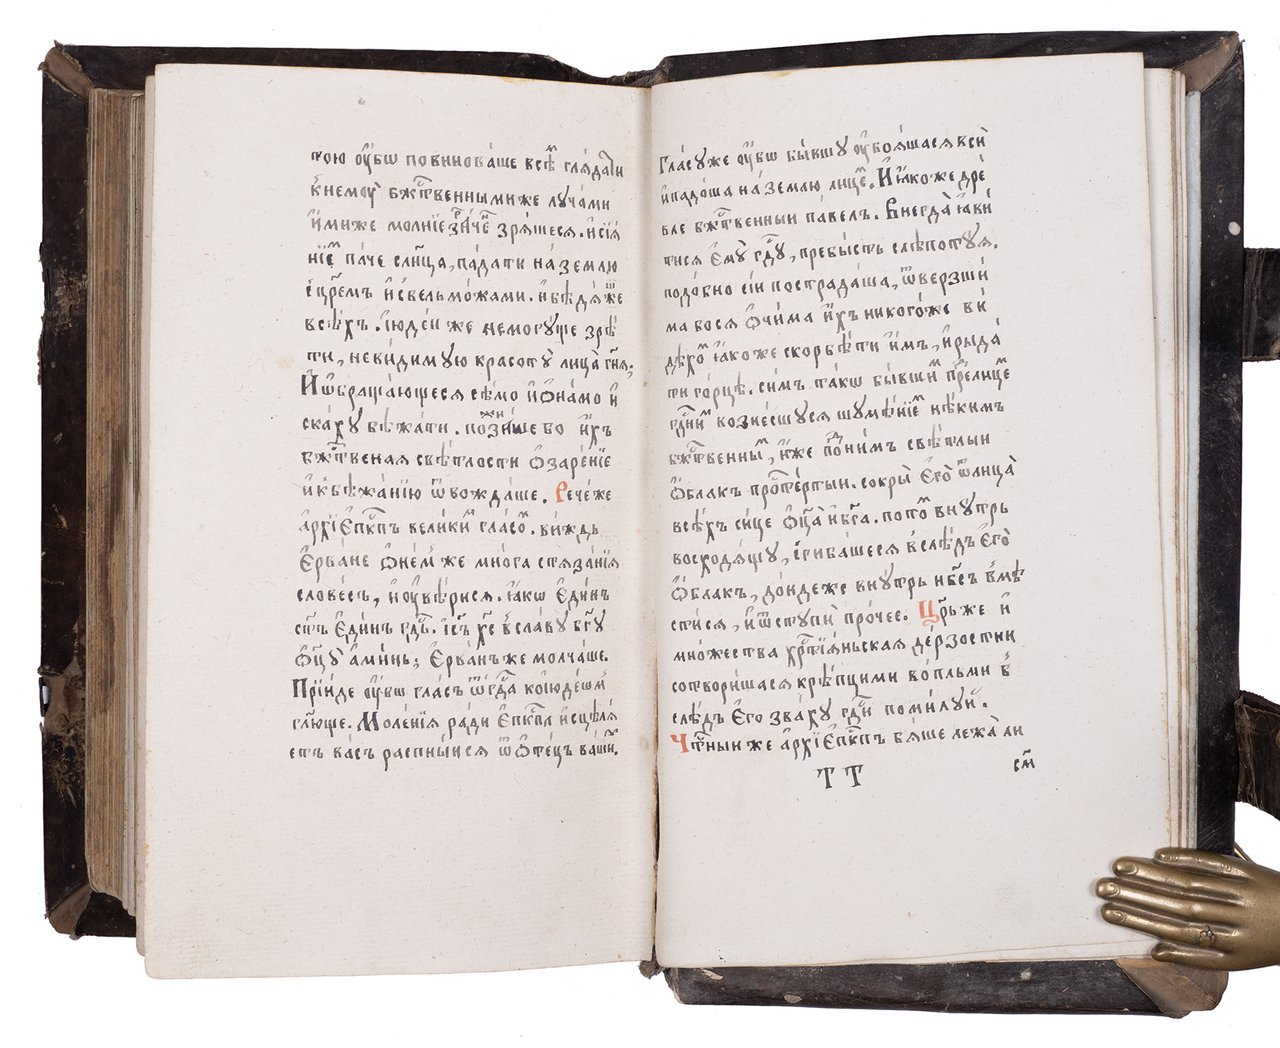 тою ᲂу҆́бѡ повинова́ше всѣ́мъ глѧ́дати
к̾немꙋ̀ бж҃твенными же луча́ми
и҆́миже молнїезра́чнѣ зрѧ́шесѧ. и҆сїѧ́
нїе́мъ па́че слн҃ца, па́дати на́ землю
с̾цр҃е́мъ и҆свельмо́жами. и҆бѣдѧ́ше
всѣ́хъ. і҆юде́и же немогꙋ́ще зрѣ́
ти, неви́димую красотꙋ̀ лица̀ гн҃ѧ,
И҆ѡ҆браща́ющесѧ сѣ́мо и҆ѻ҆на́мо и҆
ска́ху бѣжа́ти. по́зниже бо и҆́хъ
бж҃твенаѧ свѣ́тлости ѡ҆заре́нїе
и҆к̾бѣжа́нїю ѿвожда́ше. Рече́же
а҆рхїе҆пкⷭ҇пъ вели́кимъ гла́сомъ. ви́ждь
Е҆рва́не ѻ҆не́мже мно́га стѧза́нїѧ
слове́съ, и҆ᲂу҆вѣ́рисѧ. ꙗ҆́кѡ е҆ди́нъ
ст҃ъ е҆ди́нъ гдⷭ҇ь. і҆с҃ъ хрⷭ҇то́съ в̾сла́ву бг҃у
ѻ҆ц҃у̀ а҆ми́нь; Е҆рва́нъ же молча́ше.
Прїи́де ᲂу҆́бѡ гла́съ ѿгдⷭ҇а ко́ і҆юде́ѡмъ
гл҃юще. Моле́нїѧ ра́ди е҆пкⷭ҇па и҆сцѣлѧ́
етъ ва́съ распны́исѧ ѿѻ҆те́цъ ва́шихъ.
Гла́су же ᲂу҆́бѡ бы́вшу ᲂу҆боѧ́шасѧ всѝ
и҆падо́ша на́ землю лице́мъ. И҆ ꙗ҆́коже дре́
вле бж҃твенныи па́велъ. Внегда̀ ꙗ҆ви́
тисѧ є҆мꙋ̀ гдⷭ҇у, пребы́сть слѣпотуѧ.
подо́бно сі́и пострада́ша, ѿве́рзши
ма бо сѧ ѻ҆чи́ма и҆́хъ никого́же ви́
дѣхомъ ꙗ҆́коже скорбѣ́ти и҆̀мъ, и҆рыда́
ти го́рцѣ. си́мъ та́кѡ бы́вшимъ пⷭ҇релице́мъ
гдⷭ҇нимъ возне́сшуся шумѣ́нїемъ нѣ́кимъ
бж҃твеннымъ, и҆́же под̾ни́мъ свѣ́тлыи
ѻ҆́блакъ просте́ртыи. сокры̀ є҆го̀ ѿлица̀
всѣ́хъ си́це ѻ҆ц҃а и҆бг҃а. пото́мъ вну́трь
восходѧ́щу, с̾гиба́шесѧ в̾слѣ́дъ є҆го̀
ѻ҆́блакъ, до́ндеже вну́трь нбⷭ҇ъ в̾мѣ
сти́сѧ, и҆ѿступѝ про́чее. Цр҃ь же и҆
мно́жества хрⷭ҇тїѧ́ньская де́рзостни
сотвори́шасѧ крѣ́пцими во́пльми в̾
слѣ́дъ є҆го̀ зва́ху гдⷭ҇и поми́луй.
Чⷭ҇тныи же а҆рхїе҆пкⷭ҇пъ бѧ́ше лежа̀ ли
Т Т
см҃